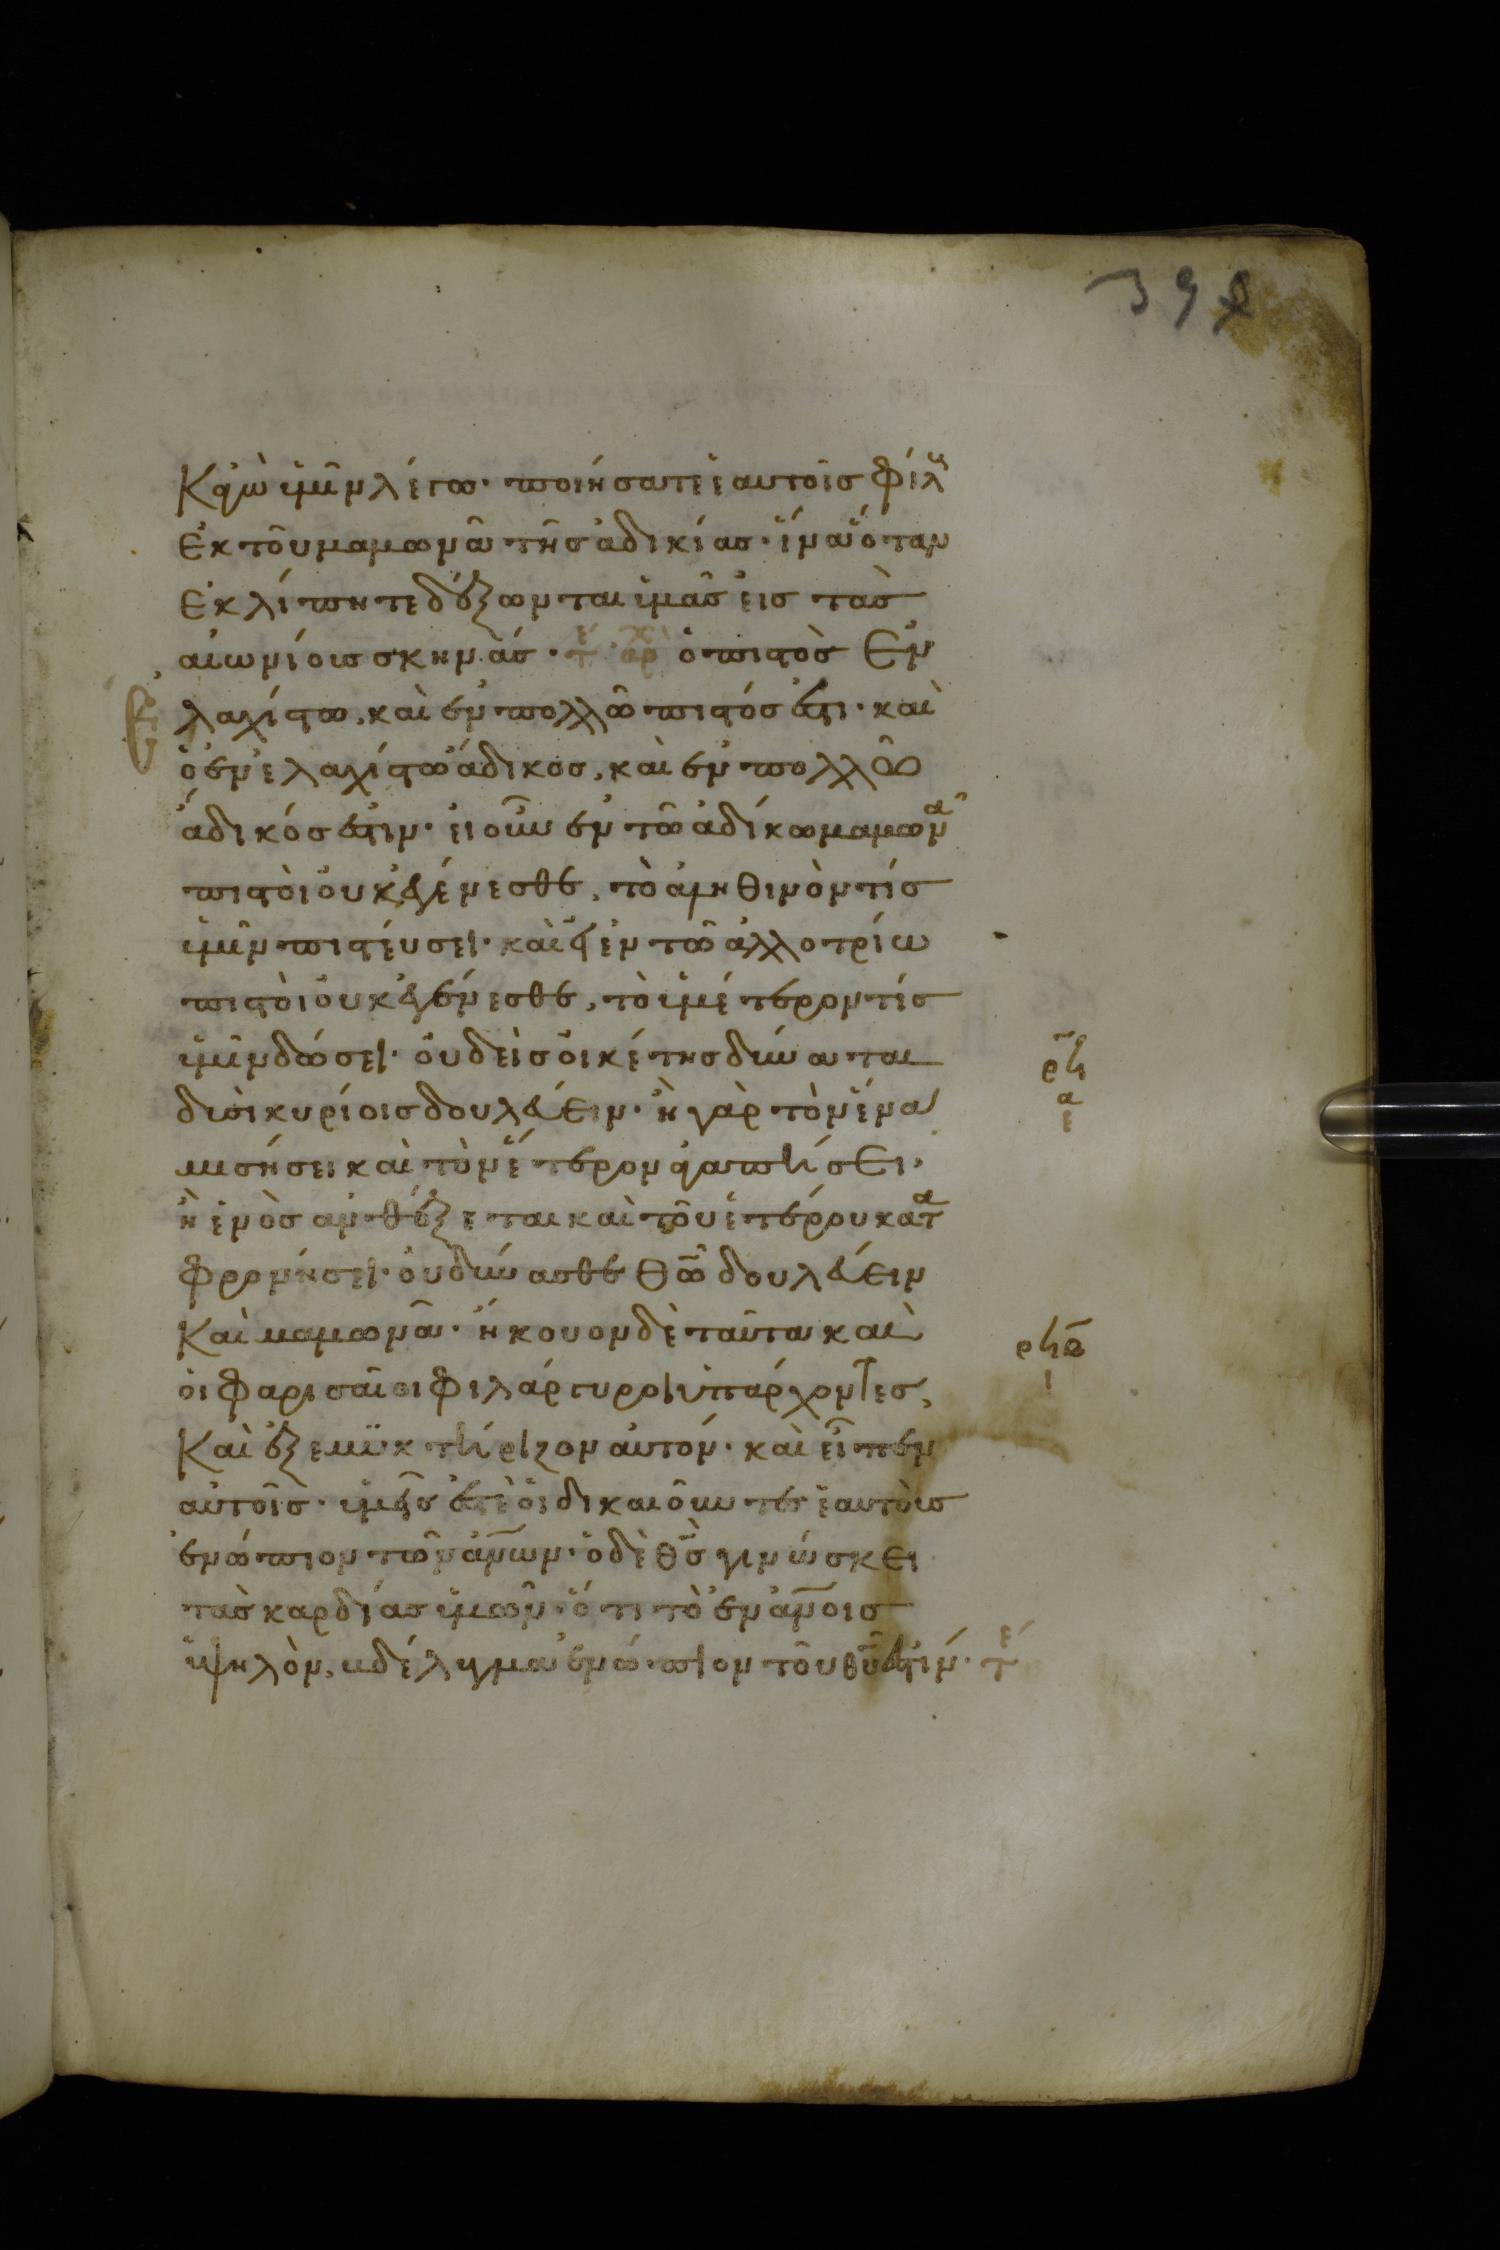 398
Κἀγὼ ὑμῖν λέγω· ποιήσατε ἑαυτοῖς φίλ
ἐκ τοῦ μαμωνᾶ τῆς ἀδικίας· ἵνα ὅταν
ἐκλίπητε δέξωνται ὑμᾶς εἰς τὰς
αἰωνίους σκηνάς· τε αρχ ὁ πιστὸς ἐν
ἐλαχίστω, καὶ ἐν πολλῶ πιστός ἐστι· καὶ
ὁ ἐν ἐλαχίστω ἄδικος, καὶ ἐν πολλῶ
ἄδικός ἐστιν· εἰ οὖν ἐν τῶ ἀδίκω μαμωνᾶ
πιστοὶ οὐκ ἐγένεσθε, τὸ ἀληθινὸν τίς
ὑμῖν πιστεύσει· καὶ εἰ ἐν τῶ ἀλλοτρίω
πιστοὶ οὐκ ἐγένεσθε, τὸ ὑμέτερον τίς
ὑμῖν δώσει· οὐδεὶς οἰκέτης δύναται
δυσὶ κυρίοις δουλεύειν· ἢ γὰρ τὸν ἕνα
μισήσει καὶ τὸν ἕτερον ἀγαπήσει·
ἢ ἑνὸς ἀνθέξεται καὶ τοῦ ἑτέρου κατα
φρονήσει· οὐ δύνασθε θῶ δουλεύειν
καὶ μαμωνᾶ· ἤκουον δὲ ταῦτα καὶ
οἱ φαρισαῖοι φιλάργυροι ὑπάρχοντες,
καὶ ἐξεμυκτήριζον αὐτόν· καὶ εἶπεν
αὐτοῖς· ὑμεῖς ἐστὲ οἱ δικαιοῦντες ἑαυτοὺς
ἐνώπιον τῶν ἀνων· ὁ δὲ θς γινώσκει
τὰς καρδίας ὑμῶν· ὅτι τὸ ἐν ἀνοις
ὑψηλὸν, βδέλυγμα ἐνώπιον τοῦ θυ ἐστίν· τε